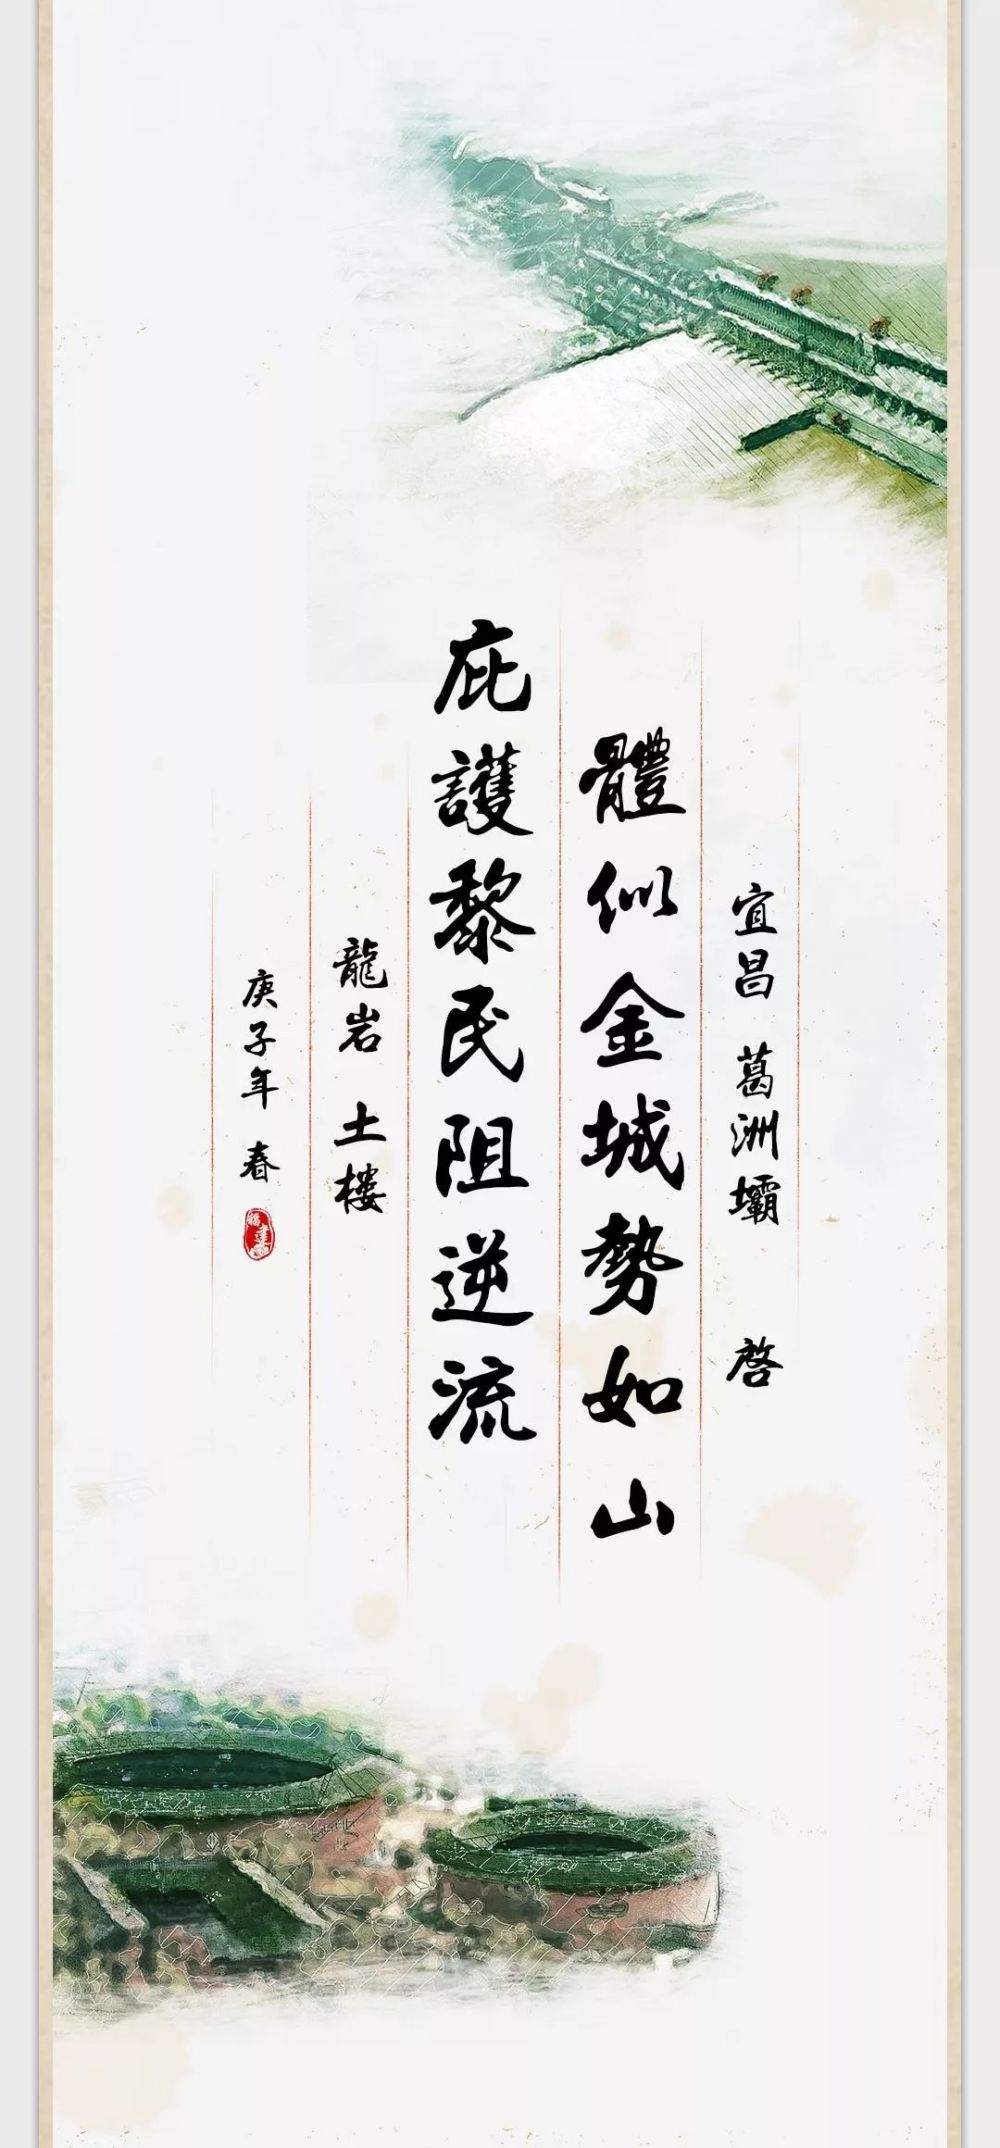 宜昌 葛洲壩 啓
體似金城勢如山
庇護黎民阻逆流
龍岩 土樓
庚子年 春
福建